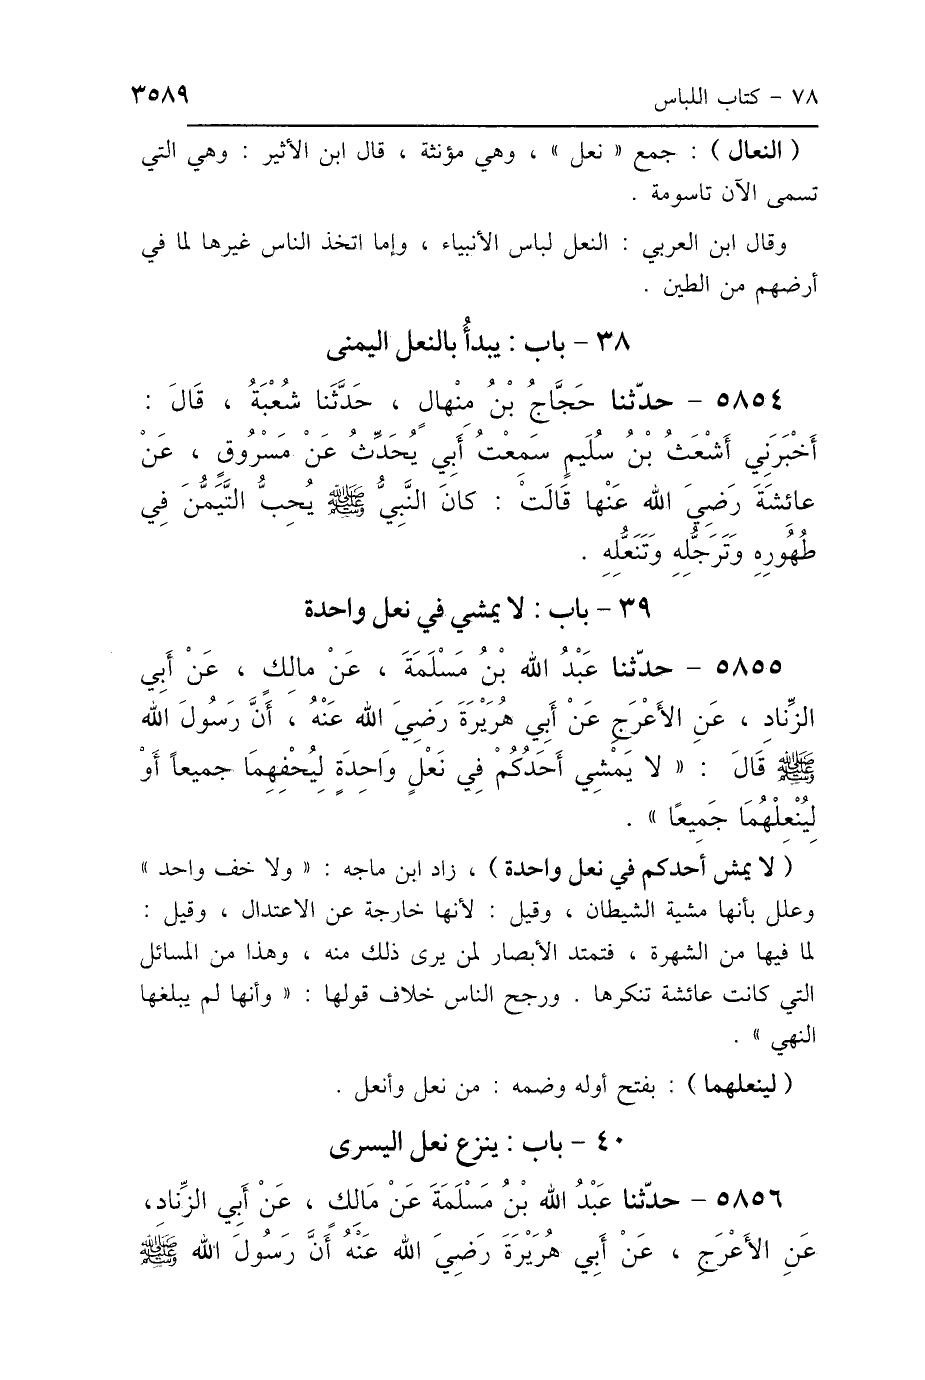 ٧٨ - كتاب اللباس ٣٥٨٩
( النعال ) : جمع « نعل » ، وهي مؤنثة ، قال ابن الأثير : وهي التي
تسمى الآن تاسومة .
وقال ابن العربي : النعل لباس الأنبياء ، وإما اتخذ الناس غيرها لما في
أرضهم من الطين .
٣٨ - باب : يبدأُ بالنعل اليمنى
٥٨٥٤ - حدّثنا حَجَّاجُ بْنُ مِنْهالٍ ، حَدَّثَنا شُعْبَةُ ، قَالَ :
أَخْبَرَنِي أَشْعَثُ بْنُ سُلَيمٍ سَمِعْتُ أَبي يُحَدِّثُ عَنْ مَسْروقٍ ، عَنْ
عائشَةَ رَضِيَ الله عَنْها قَالَتْ : كانَ النَّبِيُّ ﷺ يُحِبُّ التَّيَمُّنَ فِي
طُهُورِهِ وَتَرَجُّلِهِ وَتَنَعُّلِهِ .
٣٩ - باب : لا يمشي في نعل واحدة
٥٨٥٥ - حدّثنا عَبْدُ الله بْنُ مَسْلَمَةَ ، عَنْ مالِكٍ ، عَنْ أَبي
الزِّنادِ ، عَنِ الأَعْرَجِ عَنْ أَبي هُرَيْرَةَ رَضِيَ الله عَنْهُ ، أَنَّ رَسُولَ الله
ﷺ قَالَ : « لا يَمْشِي أَحَدُكُمْ فِي نَعْلٍ وَاحِدَةٍ لِيُحْفِهِمَا جميعاً أَوْ
لِيُنْعِلْهُمَا جَمِيعًا » .
( لا يمش أحدكم في نعل واحدة ) ، زاد ابن ماجه : « ولا خف واحد »
وعلل بأنها مشية الشيطان ، وقيل : لأنها خارجة عن الاعتدال ، وقيل :
لما فيها من الشهرة ، فتمتد الأبصار لمن يرى ذلك منه ، وهذا من المسائل
التي كانت عائشة تنكرها . ورجح الناس خلاف قولها : « وأنها لم يبلغها
النهي » .
( لينعلهما ) : بفتح أوله وضمه : من نعل وأنعل .
٤٠ - باب : ينزع نعل اليسرى
٥٨٥٦ - حدّثنا عَبْدُ الله بْنُ مَسْلَمَةَ عَنْ مَالِكٍ ، عَنْ أَبي الزِّناد،
عَنِ الأَعْرَجِ ، عَنْ أَبي هُرَيْرَةَ رَضِيَ الله عَنْهُ أَنَّ رَسُولَ الله ﷺ